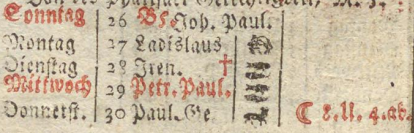 Sonntag 26 B5. Joh. Paul.
Montag 27 Ladislaus
Dienstag 28 Iren. †
Mittwoch 29 Petr. Paul.
Donnerst. 30 Paul. Ge ☾ 8. U. 4. ab.